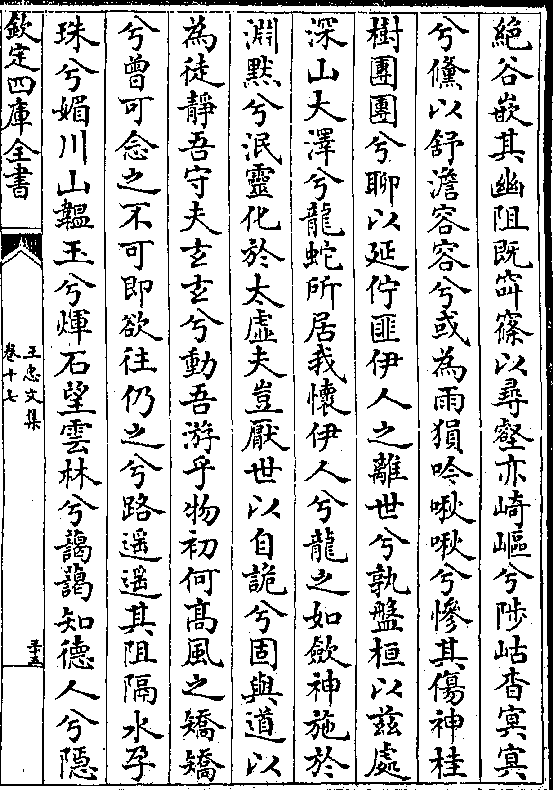 絶谷嵌其幽阻既窅窱以尋壑亦﨑嶇兮陟岵杳㝠㝠
兮儻以舒澹容容兮或為雨猨吟啾啾兮慘其傷神桂
樹團團兮聊以延佇匪伊人之離世兮孰盤桓以兹處
深山大澤兮龍蛇所居我懷伊人兮龍之如歛神施於
淵黙兮泯靈化於太虚夫豈厭世以自詭兮固與道以
為徒靜吾守夫玄玄兮動吾游乎物初何髙風之矯矯
兮曽可念之不可即欲往仍之兮路遥遥其阻隔水孕
珠兮媚川山韞玉兮煇石望雲林兮藹藹知德人兮隠
欽定四庫全書
王忠文集
卷十七